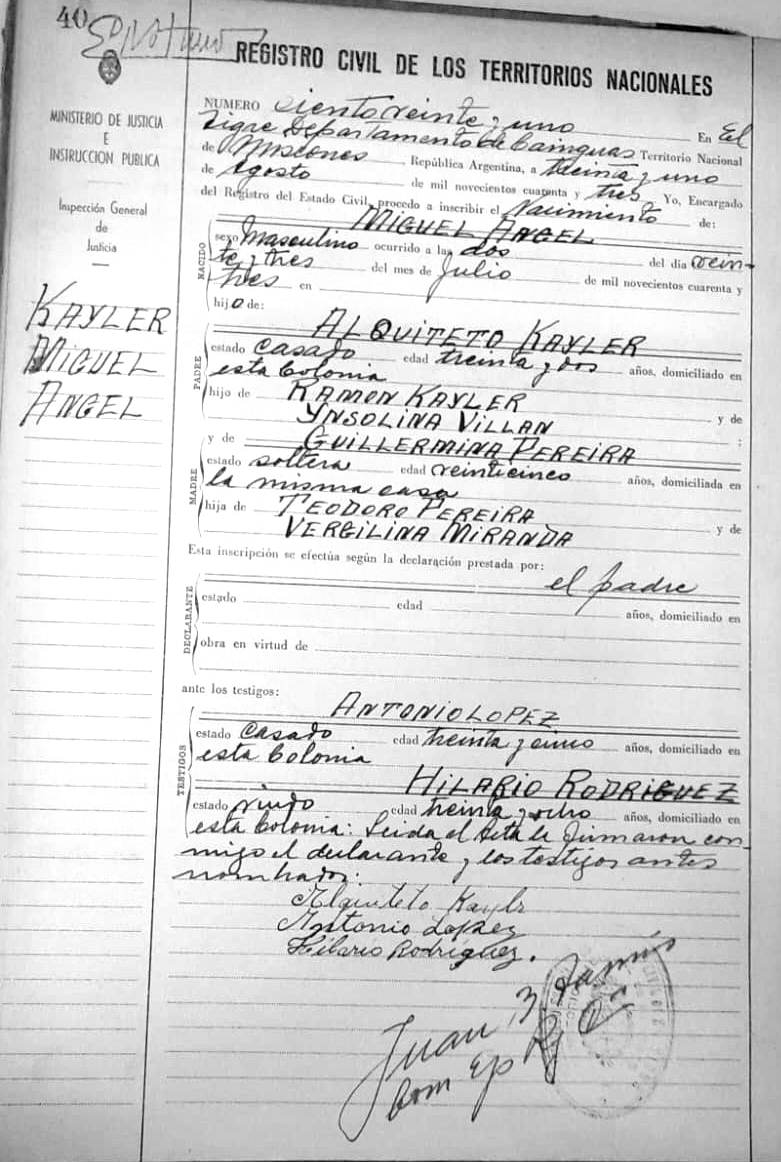 40
REGISTRO CIVIL DE LOS TERRITORIOS NACIONALES
MINISTERIO DE JUSTICIA
E
INSTRUCCION PUBLICA
Inspección General
de
Justicia
KAYLER
MIGUEL
ANGEL
NUMERO Ciento veinte y uno En El
Tigre Departamento de Cainguas Territorio Nacional
de Misiones República Argentina, a treinta y uno
de Agosto de mil novecientos cuarenta y tres Yo, Encargado
del Registro del Estado Civil, procedo a inscribir el Nacimiento de:
MIGUEL ANGEL
NACIDO
sexo Masculino ocurrido a las dos del día vein-
te y tres del mes de Julio de mil novecientos cuarenta y
tres en
hijo de:
ALQUITETO KAYLER
PADRE
estado casado edad treinta y dos años, domiciliado en
esta Colonia
hijo de RAMON KAYLER y de
YNSOLINA VILLAN :
y de GUILLERMINA PEREIRA
MADRE
estado soltera edad veinticinco años, domiciliada en
la misma casa
hija de TEODORO PEREIRA y de
VERGILINA MIRANDA
Esta inscripción se efectúa según la declaración prestada por:
el padre
DECLARANTE
estado edad años, domiciliado en
obra en virtud de
ante los testigos:
ANTONIO LOPEZ
TESTIGOS
estado casado edad treinta y cinco años, domiciliado en
esta Colonia
HILARIO RODRIGUEZ
estado viudo edad treinta y ocho años, domiciliado en
esta Colonia: Leida el Acta le firmaron con-
migo el declarante y los testigos antes
nombrados:
Alquiteto Kayler
Antonio Lopez
Hilario Rodriguez.
Juan